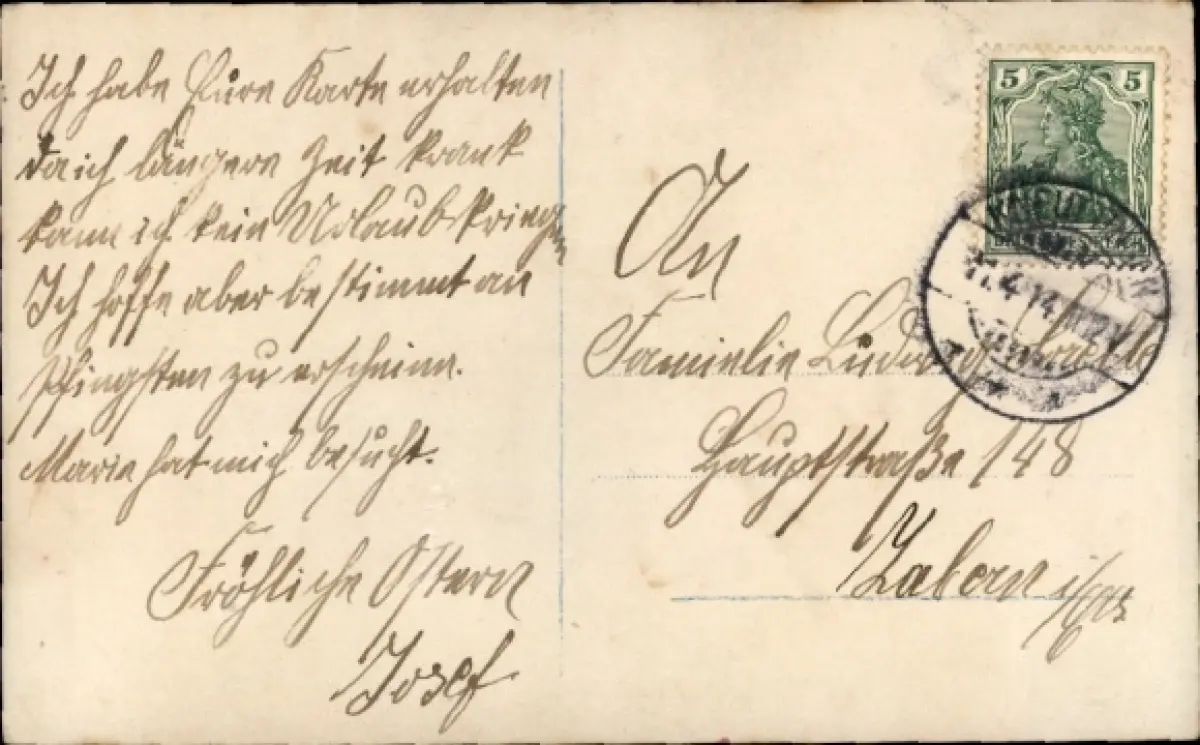 Ich habe Eure Karte erhalten
da ich längere Zeit krank
kann ich kein Urlaub kriegen
Ich hoffe aber bestimmt an
Pfingsten zu erscheinn.
Marie hat mich besucht.
Fröhliche Ostern
Josef
5 5
An
Faminlie Ludwig
Hauptstraße 148
Zabern i/Els